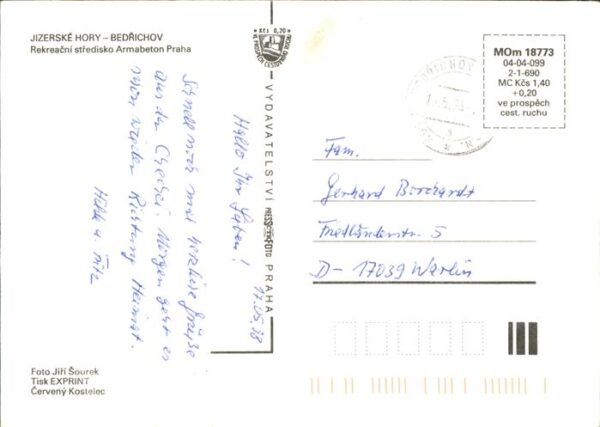 JIZERSKÉ HORY – BEDŘICHOV
Rekreační středisko Armabeton Praha
Kčs 0,20
VE PROSPĚCH CESTOVNÍHO RUCHU
VYDAVATELSTVÍ PRESSFOTO PRAHA
MOm 18773
04-04-099
2-1-690
MC Kčs 1,40
+0,20
ve prospěch
cest. ruchu
17.05.98
Hallo Ihr Lieben!
Schnell noch mal herzliche Grüße
aus der Chechei. Morgen geht es
nun wieder Richtung Heimat.
Fam.
Gerhard Borchardt
Friedländerstr. 5
D-17039 Warlin
Foto Jiří Šourek
Tisk EXPRINT
Červený Kostelec